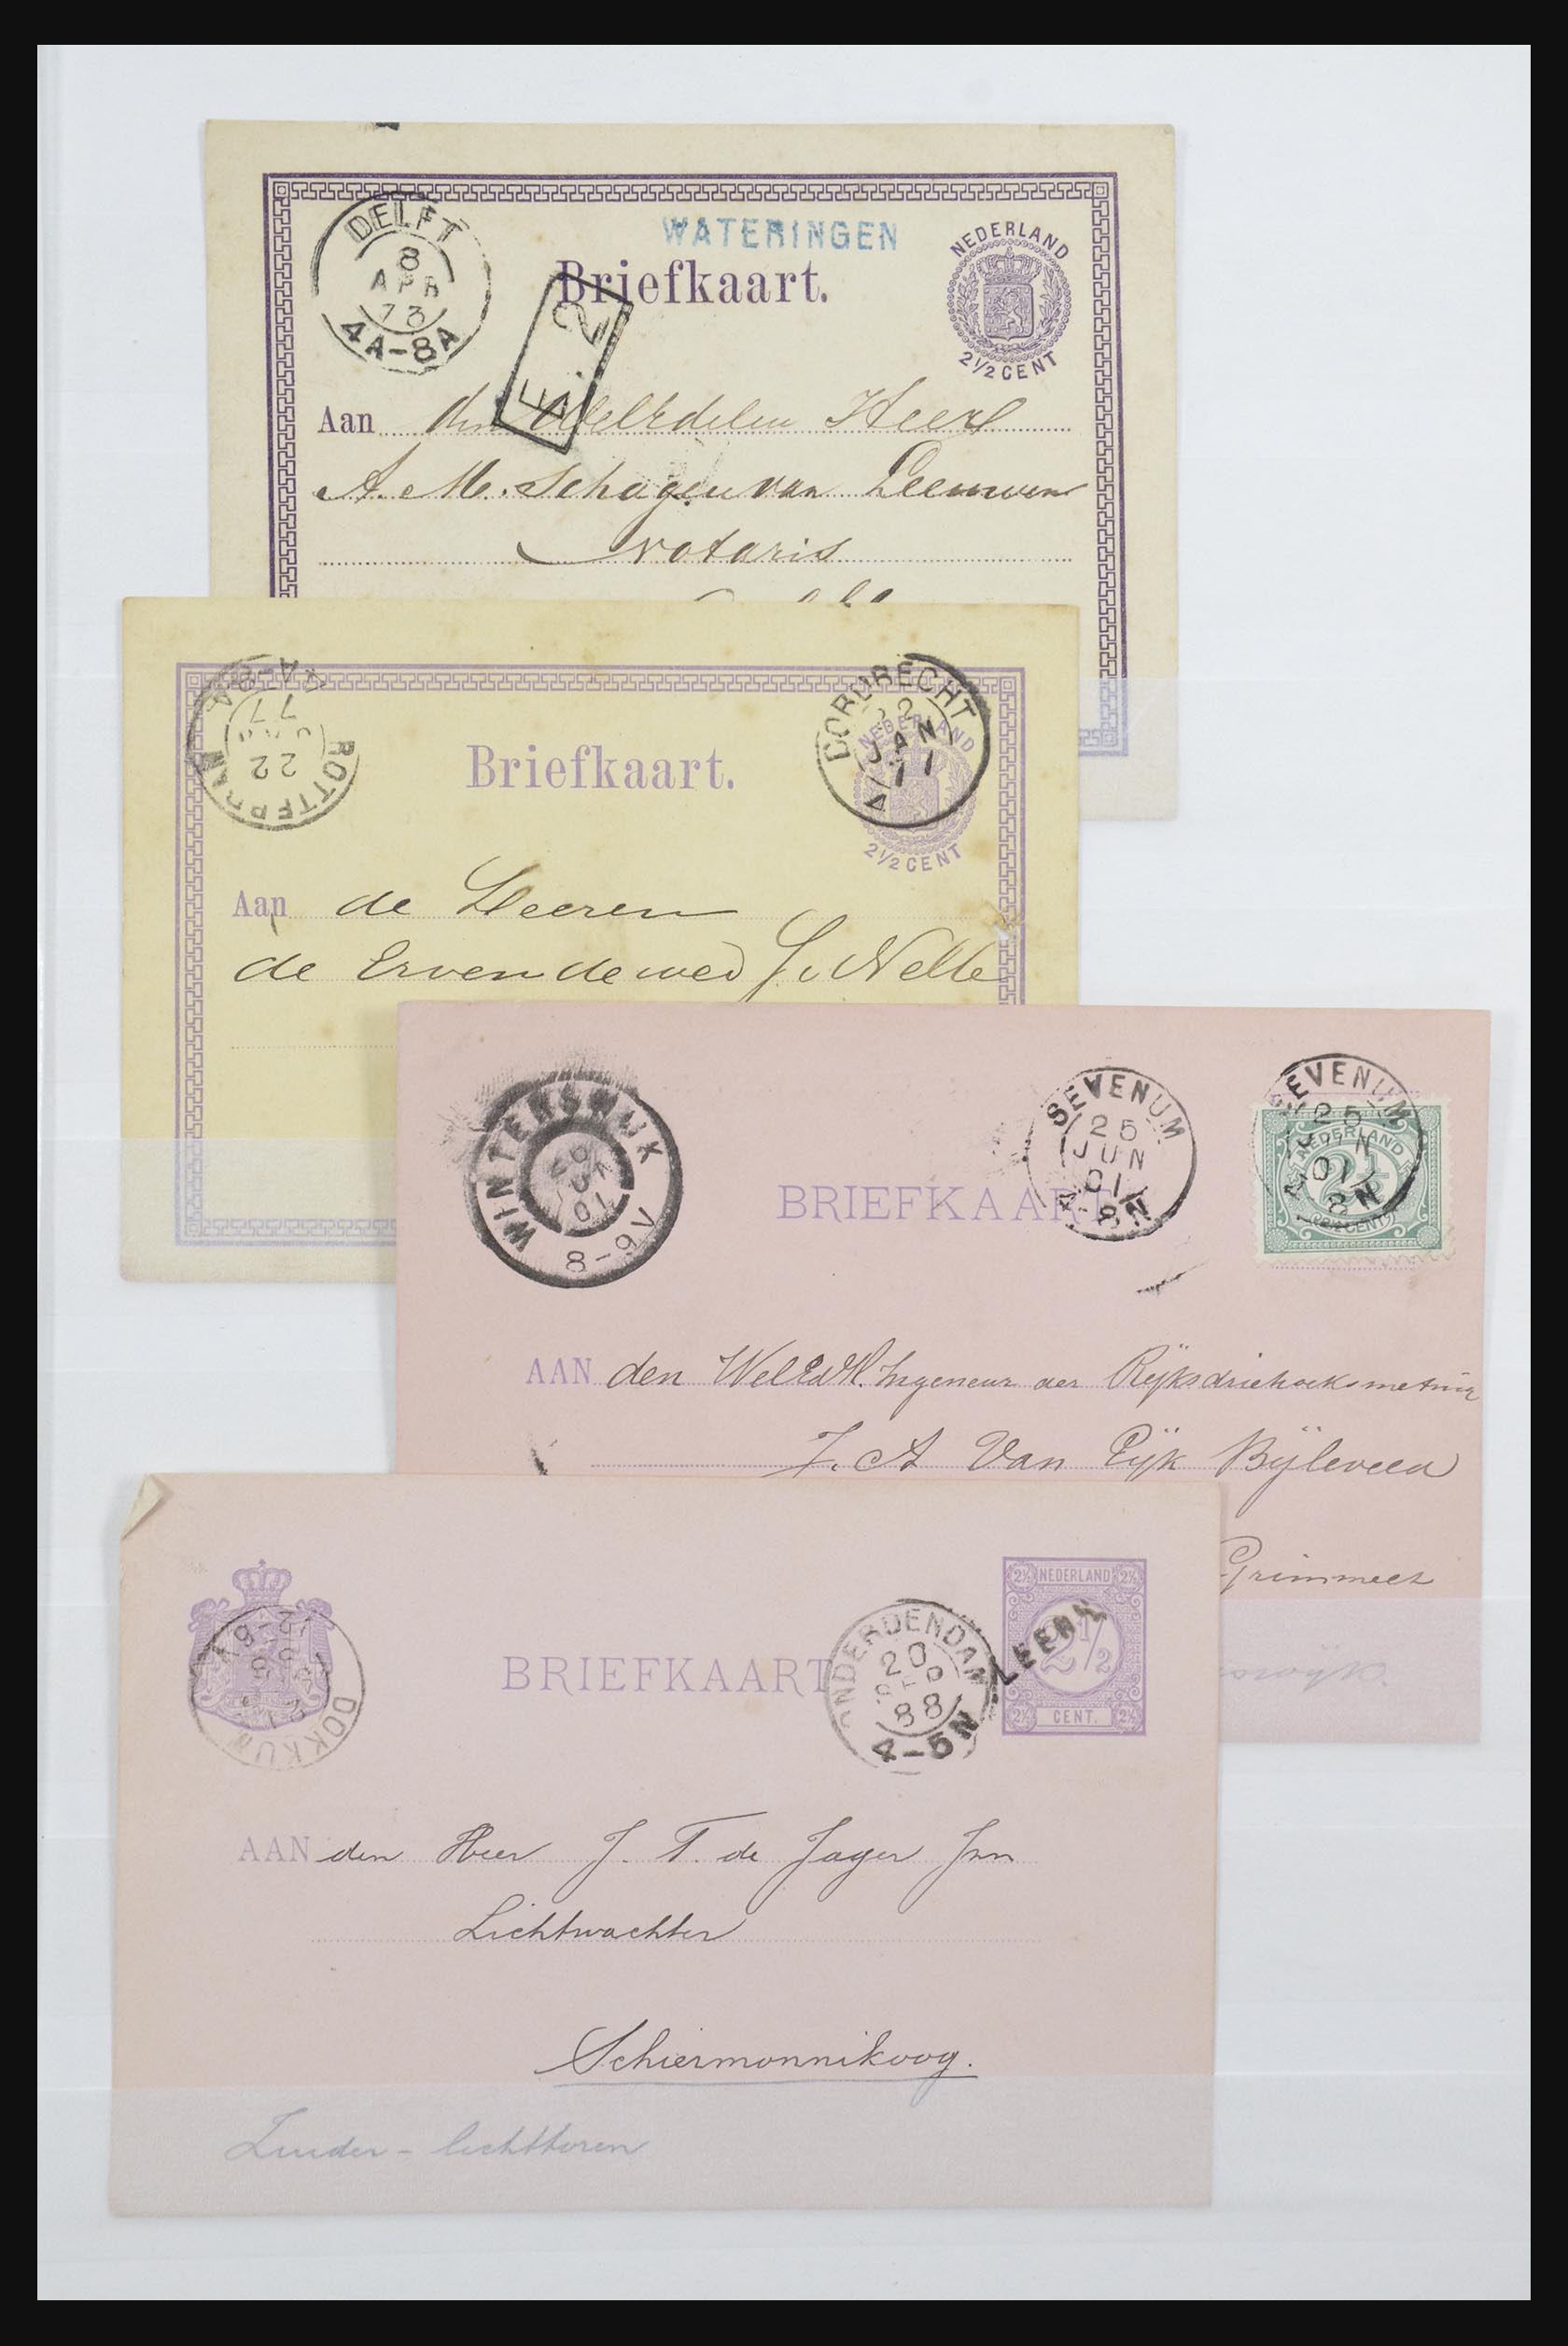 DELFT
8
APR
73
4A-8A
WATERINGEN
Briefkaart.
NEDERLAND
2½ CENT
F. 2
Aan den WelEdelen Heer
A. M. Schagen van Leeuwen
notaris
4A-8A
77
22
ROTTERDAM
Briefkaart.
DORDRECHT
JAN
NEDERLAND
2½ CENT
Aan de Heeren
de Erven de wed J. v Nelle
WINTERSWIJK
01
8-9V
BRIEFKAART
SEVENUM
25
JUN
01
8N
SEVENUM
25
01
8N
NEDERLAND
2½
CENT
AAN den WelEd. Ingenieur der Rijksdriehoeksmeting
J. A Van Pijk Bijleveld
DOKKUM
BRIEFKAART
ONDERDENDAM
20
SEP
88
4-5N
LEENS
2½ NEDERLAND 2½
2½
2½ CENT. 2½
AAN den Heer J. T. de Jager Jnn
Lichtwachter
Schiermonnikoog.
Zuider - lichttoren